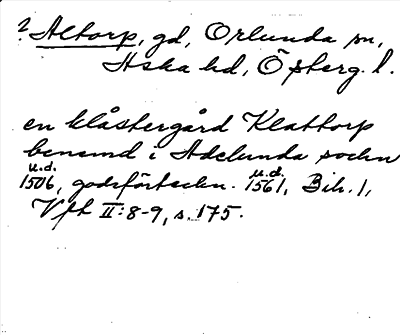 ? Altorp, gd, Orlunda sn,
Aska hd, Öster g. l.
en klåstergård Klattorp
benemd i Adelunda sochn
u.d. u.d.
1506, godsförteckn. 1561, Bih. 1,
Vfk II:8-9, s. 175.